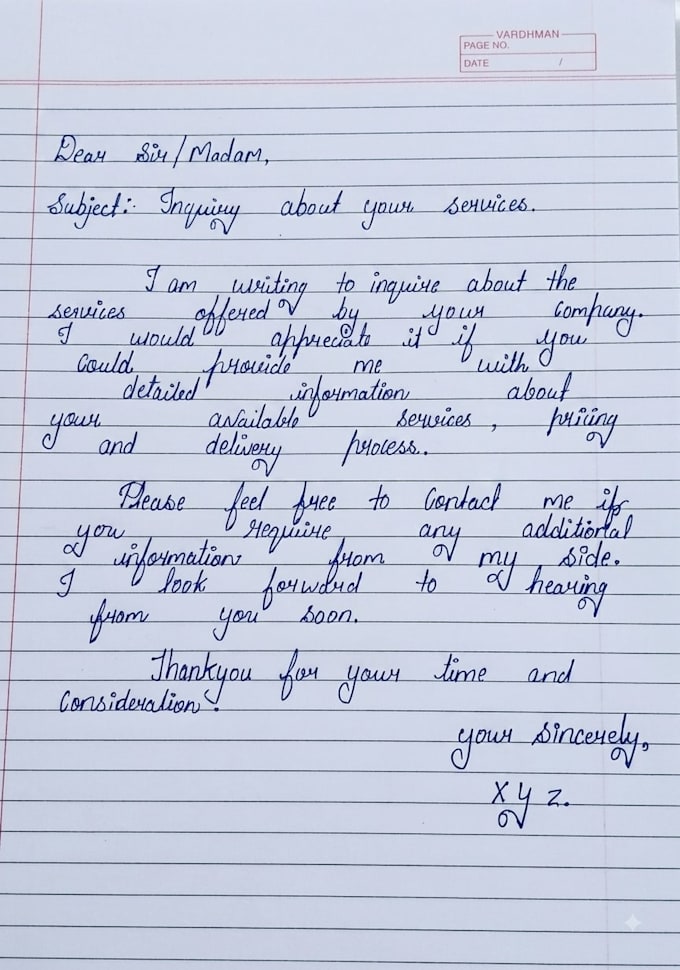 VARDHMAN
PAGE NO.
DATE /
Dear Sir/Madam,
Subject:- Inquiry about your services.
I am writing to inquire about the
services offered by your company.
I would appreciate it if you
could provide me with
detailed information about
your available services, pricing
and delivery process..
Please feel free to contact me if
you require any additional
information from my side.
I look forward to hearing
from you soon.
Thankyou for your time and
consideration.
your sincerely,
x y z.